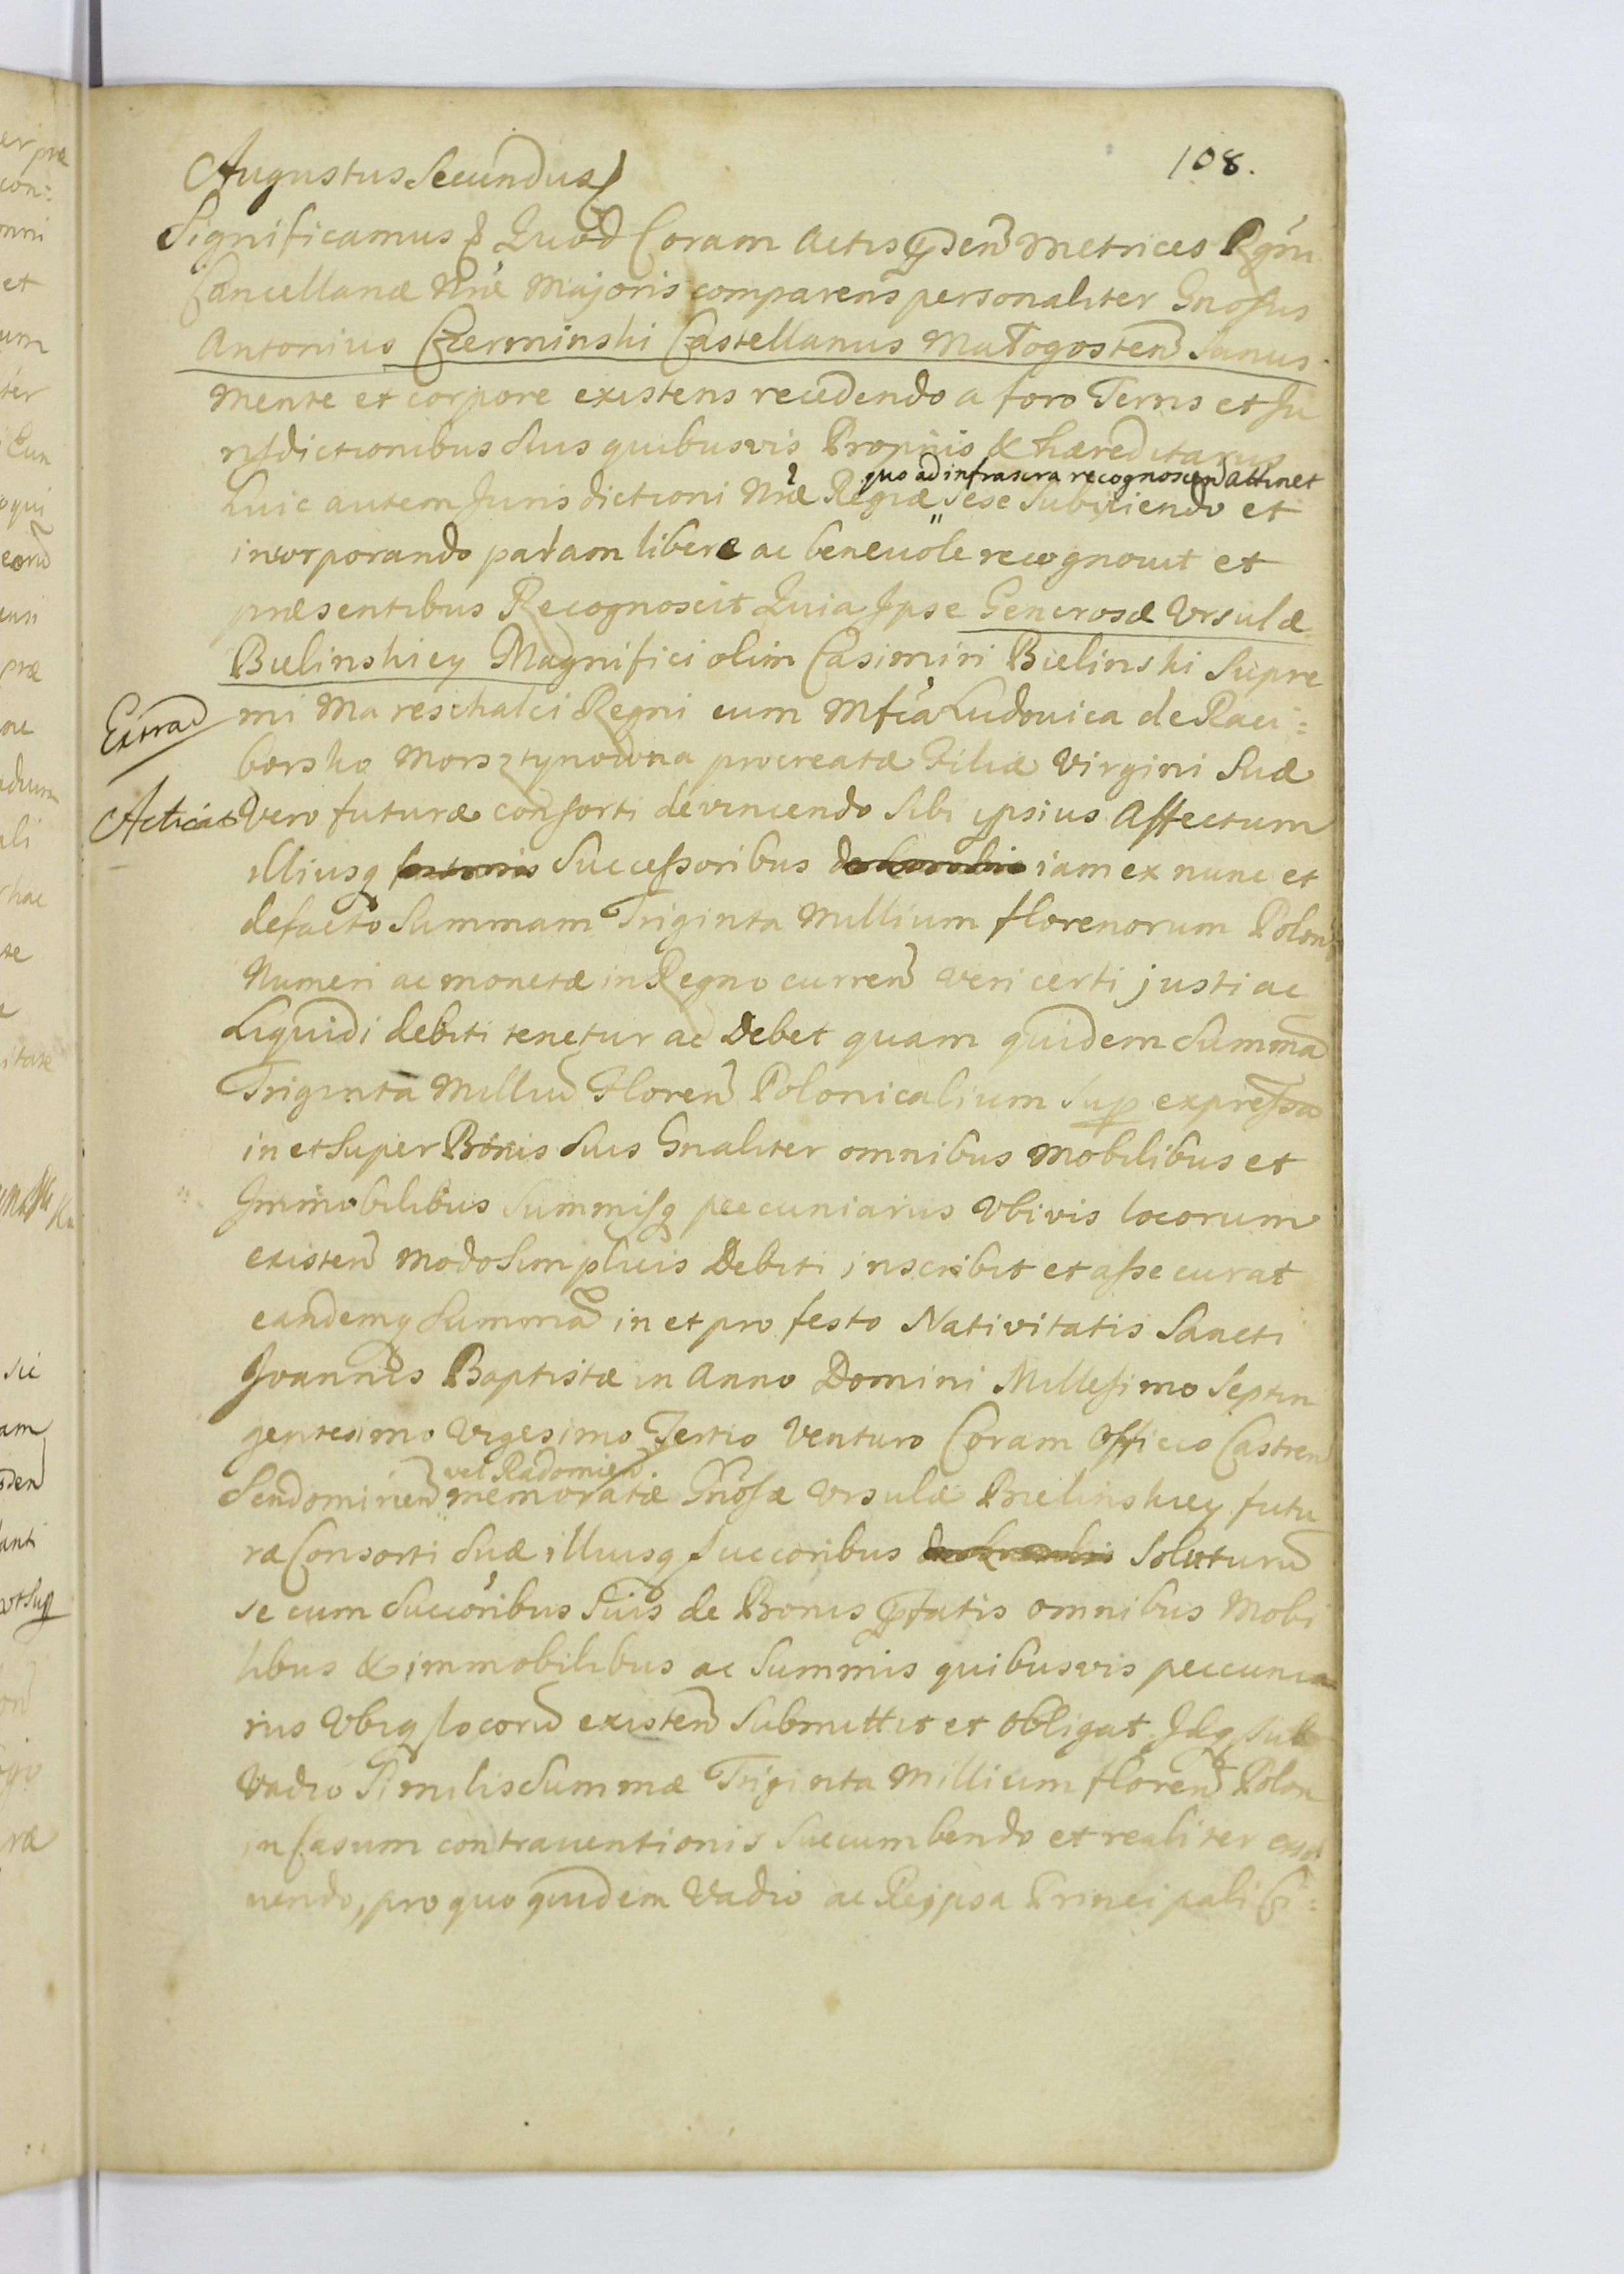 108.
Augustus Secundus
Significamus Quod Coram Actis pñsen Metrices Rgni
Cancellariæ Nræ Majoris comparens personaliter Gnosus
Antonius Czerminski Castellanus Małogosten Sanus
Mente et corpore existens recedendo a foro Terris et Ju
risdictionibus Suis quibusvis Proprijs & hæreditarijs
quo ad infrascra recognoscen attinet
huic autem Juris dictioni Nræ Regiæ " sese Subijciendo et
incorporando palam libere ac beneuole recognouit et
præsentibus Recognoscit Quia Ipse Generosæ Vrsulæ
Bielinskiey Magnifici olim Casimiri Bielinski Supre
Extrad
mi Mareschalci Regni cum Mfca Ludouica de Raci:
borsko Morsztynowna procreatæ Filiæ Virgini Suæ
Acticat
Vero futuræ consorti devinciendo Sibi ipsius Affectum
illiusq Successoribus iam ex nunc et
defacto Summam Triginta Millium florenorum Polon
Numeri ac monetæ in Regno curren veri certi justi ac
Liquidi debiti tenetur ac Debet quam quidem Summa
Triginta Milliu Floren Polonicalium Sup expressa
in et Super Bonis Suis Gnaliter omnibus Mobilibus et
Immobilibus Summisq peccuniarijs Vbivis locorum
existen modo Simplicis Debiti inscribit et assecurat
eandemq Summa in et pro festo Nativitatis Sancti
Joannis Baptistæ in Anno Domini Millesimo Septin
gentesimo Vigesimo Tertio Venturo Coram Officio Castren
vel Radomien
Sendomirien memoratæ Gnosæ Vrsulæ Bielinskiey futu
ræ Consorti Suæ illiusq Succoribus Soluturu
se cum Succoribus Suis de Bonis pfatis omnibus Mobi
libus & immobilibus ac Summis quibusvis peccunia
rijs Vbiq locoru existen Submittit et obligat Idq sub
Vadio Similis Summæ Triginta Millium floren Polon
in Casum contrauentionis Succumbendo et realiter exsol
uendo, pro quo quidem Vadio ac Reipsa Principali Si: